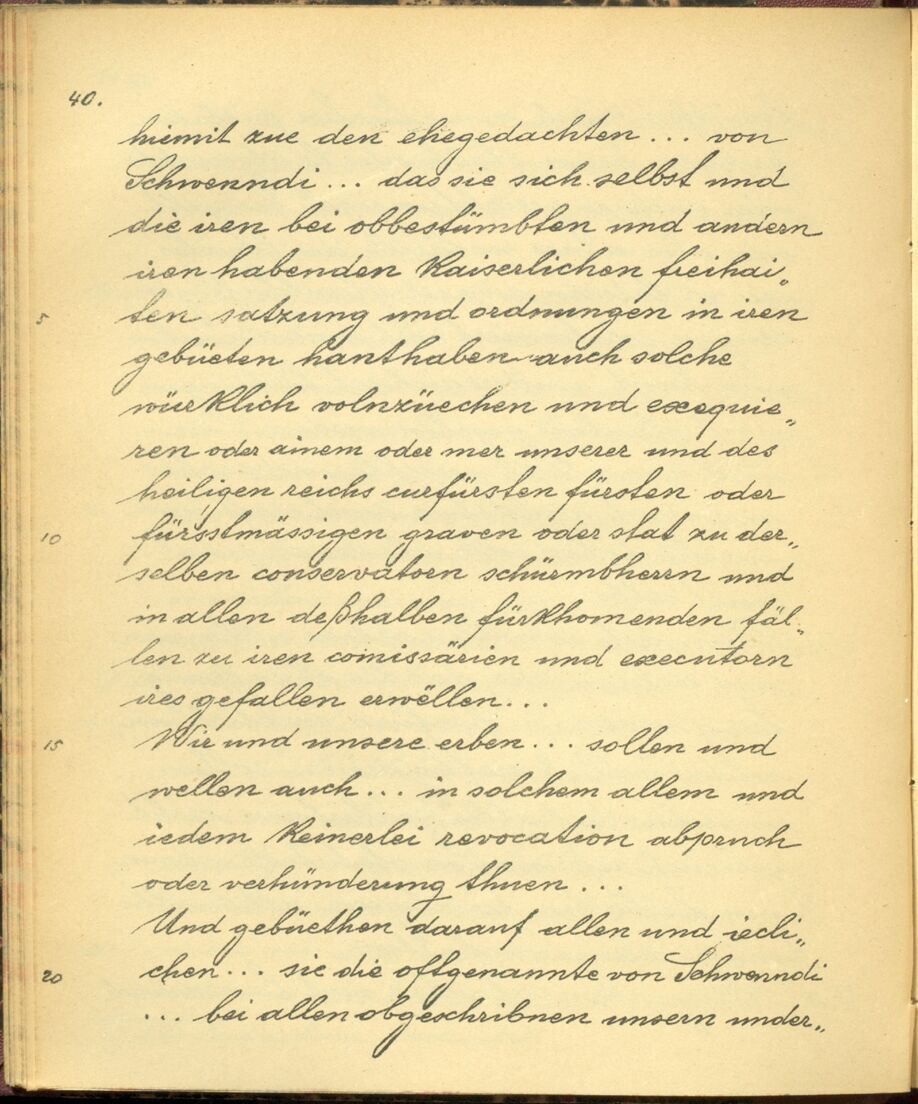 40.
hiemit zue den ehegedachten ... von
Schwenndi ... das sie sich selbst und
die iren bei obbestümbten und andern
iren habenden Kaiserlichen freihai„
5 ten satzung und ordnungen in iren
gebüeten hanthaben auch solche
würklich volnzüechen und exequie„
ren oder ainem oder mer unserer und des
heiligen reichs curfürsten fürsten oder
10 fürsstmässigen graven oder stat zu der„
selben conservatorn schürmbherrn und
in allen deßhalben fürkhomenden fäl„
len zu iren comissärien und executorn
ires gefallen erwëllen...
15 Wir und unsere erben ... sollen und
wellen auch ... in solchem allem und
iedem Keinerlei revocation abpruch
oder verhünderung thuen ...
Und gebüethen darauf allen und iecli„
20 chen ... sie die oftgenannte von Schwenndi
... bei allen obgeschribnen unsern under„